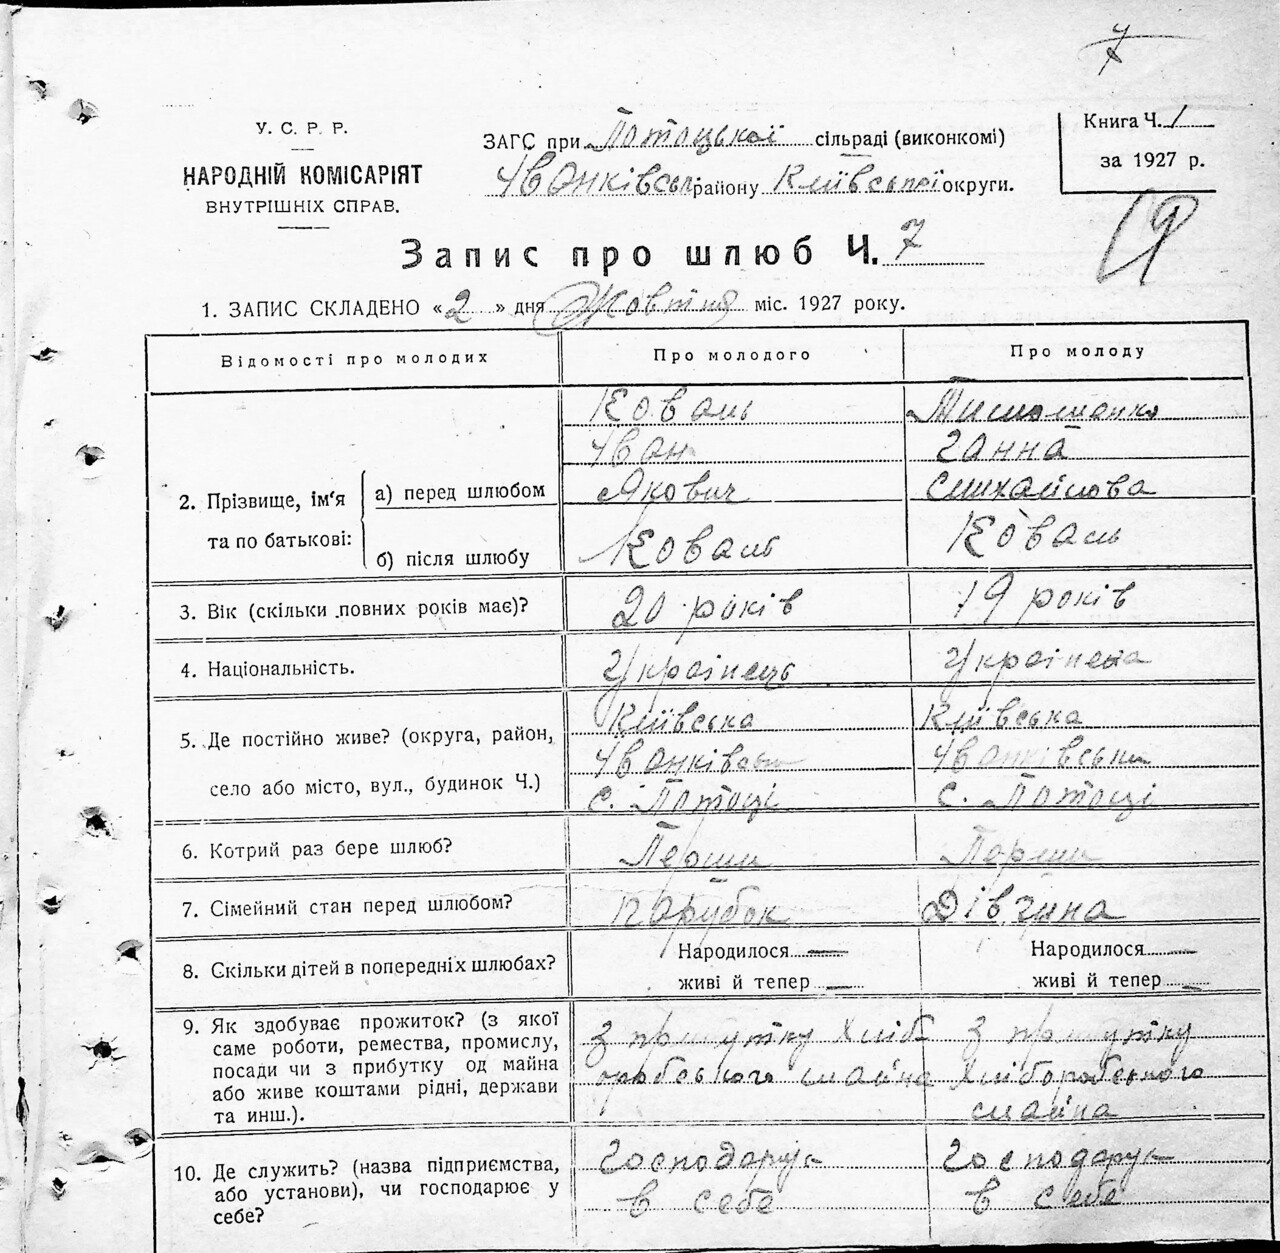 7
У. С. Р. Р.
НАРОДНІЙ КОМІСАРІЯТ
ВНУТРІШНІХ СПРАВ.
ЗАГС при Потоцької сільраді (виконкомі)
Іванківськ району Київської округи.
Книга Ч. 1
за 1927 р.
Запис про шлюб Ч. 7
1. ЗАПИС СКЛАДЕНО « 2 » дня Жовтня міс. 1927 року.
Відомості про молодих Про молодого Про молоду
2. Прізвище, ім'я та по батькові:
а) перед шлюбом
Коваль
Іван
Якович
Тимошенко
Ганна
Михайлова
б) після шлюбу Коваль Коваль
3. Вік (скільки повних років має)? 20 років 19 років
4. Національність. Українець Українка
5. Де постійно живе? (округа, район,
село або місто, вул., будинок Ч.)
Київська Київська
Іванківськ Іванківськи
с. Потоці с. Потоці
6. Котрий раз бере шлюб? Перши Перши
7. Сімейний стан перед шлюбом? Парубок Дівчина
8. Скільки дітей в попередніх шлюбах? Народилося — Народилося —
живі й тепер — живі й тепер —
9. Як здобуває прожиток? (з якої
саме роботи, ремества, промислу,
посади чи з прибутку од майна
або живе коштами рідні, держави
та инш.).
з прибутку хліб
оробського майна
з прибутку
хліборобського
майна
10. Де служить? (назва підприємства,
або установи), чи господарює у
себе?
Господарує Господарує
в себе в себе